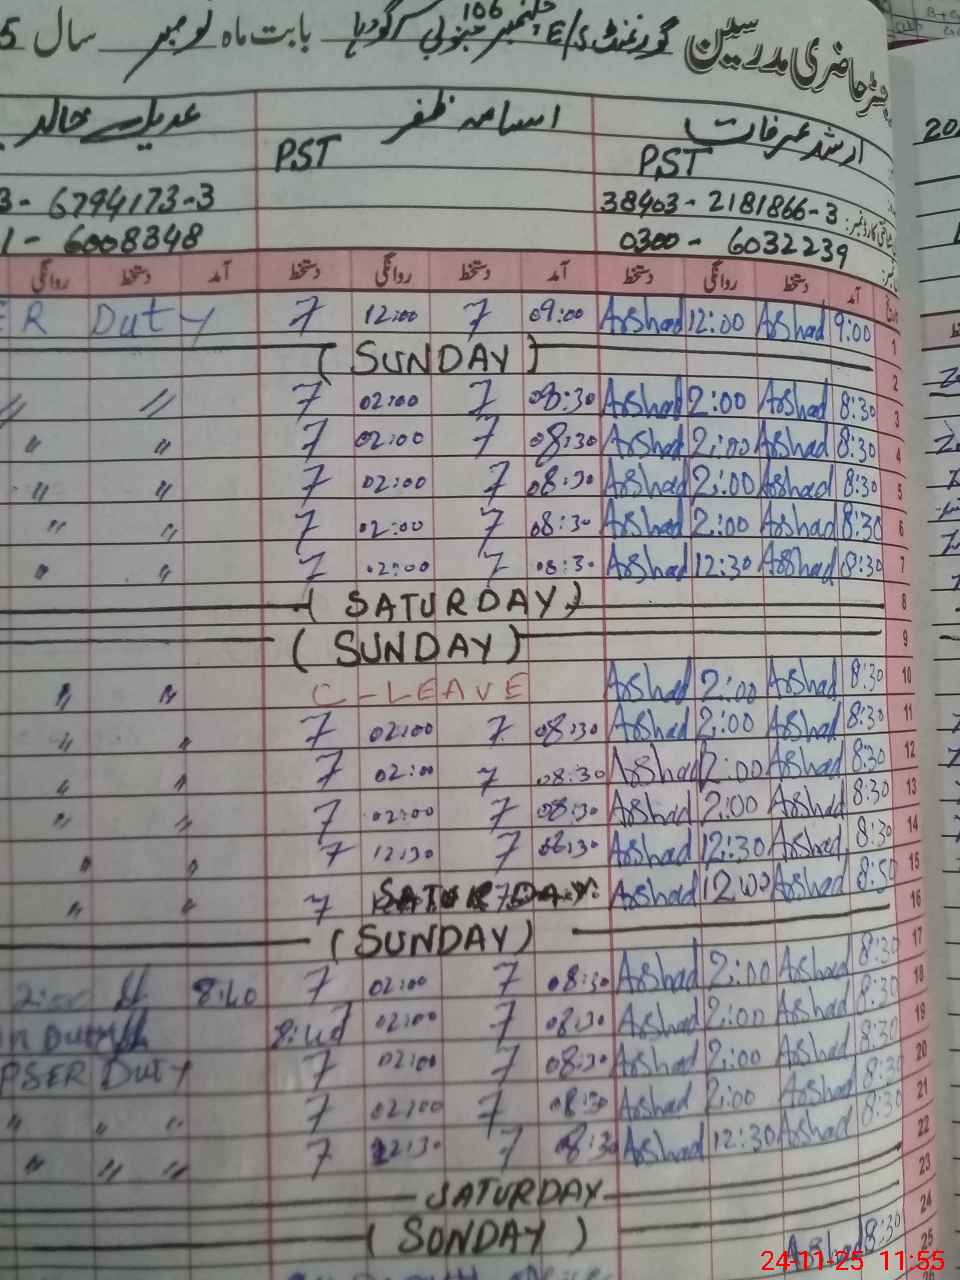 رجسٹر حاضری مدرسین گورنمنٹ E/S چک نمبر 106 جنوبی سرگودہا بابت ماہ نومبر سال 5
ارشد عرفات اسامہ ظفر عدیل خالد
PST PST
38403-2181866-3 3-6794173-3
0300-6032239 1-6008348
آمد دستخط روانگی دستخط آمد دستخط روانگی دستخط آمد دستخط روانگی
1 9:00 Arshad 12:00 Arshad 09:00 7 12:00 7 ER Duty
2 (SUNDAY)
3 8:30 Arshad 2:00 Arshad 08:30 7 02:00 7 〃 〃
4 8:30 Arshad 2:00 Arshad 08:30 7 02:00 7 〃 〃
5 8:30 Arshad 2:00 Arshad 08:30 7 02:00 7 〃 〃
6 8:30 Arshad 2:00 Arshad 08:30 7 02:00 7 〃 〃
7 8:30 Arshad 12:30 Arshad 08:30 7 02:00 7 〃 〃
8 (SATURDAY)
9 (SUNDAY)
10 8:30 Arshad 2:00 Arshad C-LEAVE 〃 〃
11 8:30 Arshad 2:00 Arshad 08:30 7 02:00 7 〃 〃
12 8:30 Arshad 2:00 Arshad 08:30 7 02:00 7 〃 〃
13 8:30 Arshad 2:00 Arshad 08:30 7 02:00 7 〃 〃
14 8:30 Arshad 12:30 Arshad 08:30 7 12:30 7 〃 〃
15 8:30 Arshad 12:00 Arshad SATURDAY 7 〃 〃
16 (SUNDAY)
17 8:30 Arshad 2:00 Arshad 08:30 7 02:00 7 8:40
18 8:30 Arshad 2:00 Arshad 08:30 7 02:00 8:40 n Duty
19 8:30 Arshad 2:00 Arshad 08:30 7 02:00 7 PSER Duty
20 8:30 Arshad 2:00 Arshad 08:30 7 02:00 7 〃 〃 〃
21 8:30 Arshad 12:30 Arshad 08:30 7 12:30 7 〃 〃 〃
22 SATURDAY
23 (SUNDAY)
24 8:30 Arshad
25
24-11-25 11:55